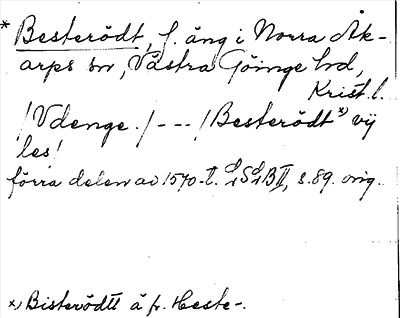 * Besterödt, f. äng i Norra Åk-
arps sn, Västra Göinge hd,
Krist. l.
/Vdenge./ --- /Besterödt *) vij
les/
förra delen av 1570-t. LSLB II, s. 89. orig.
*) Bisterödtt ä fr. Heste-.